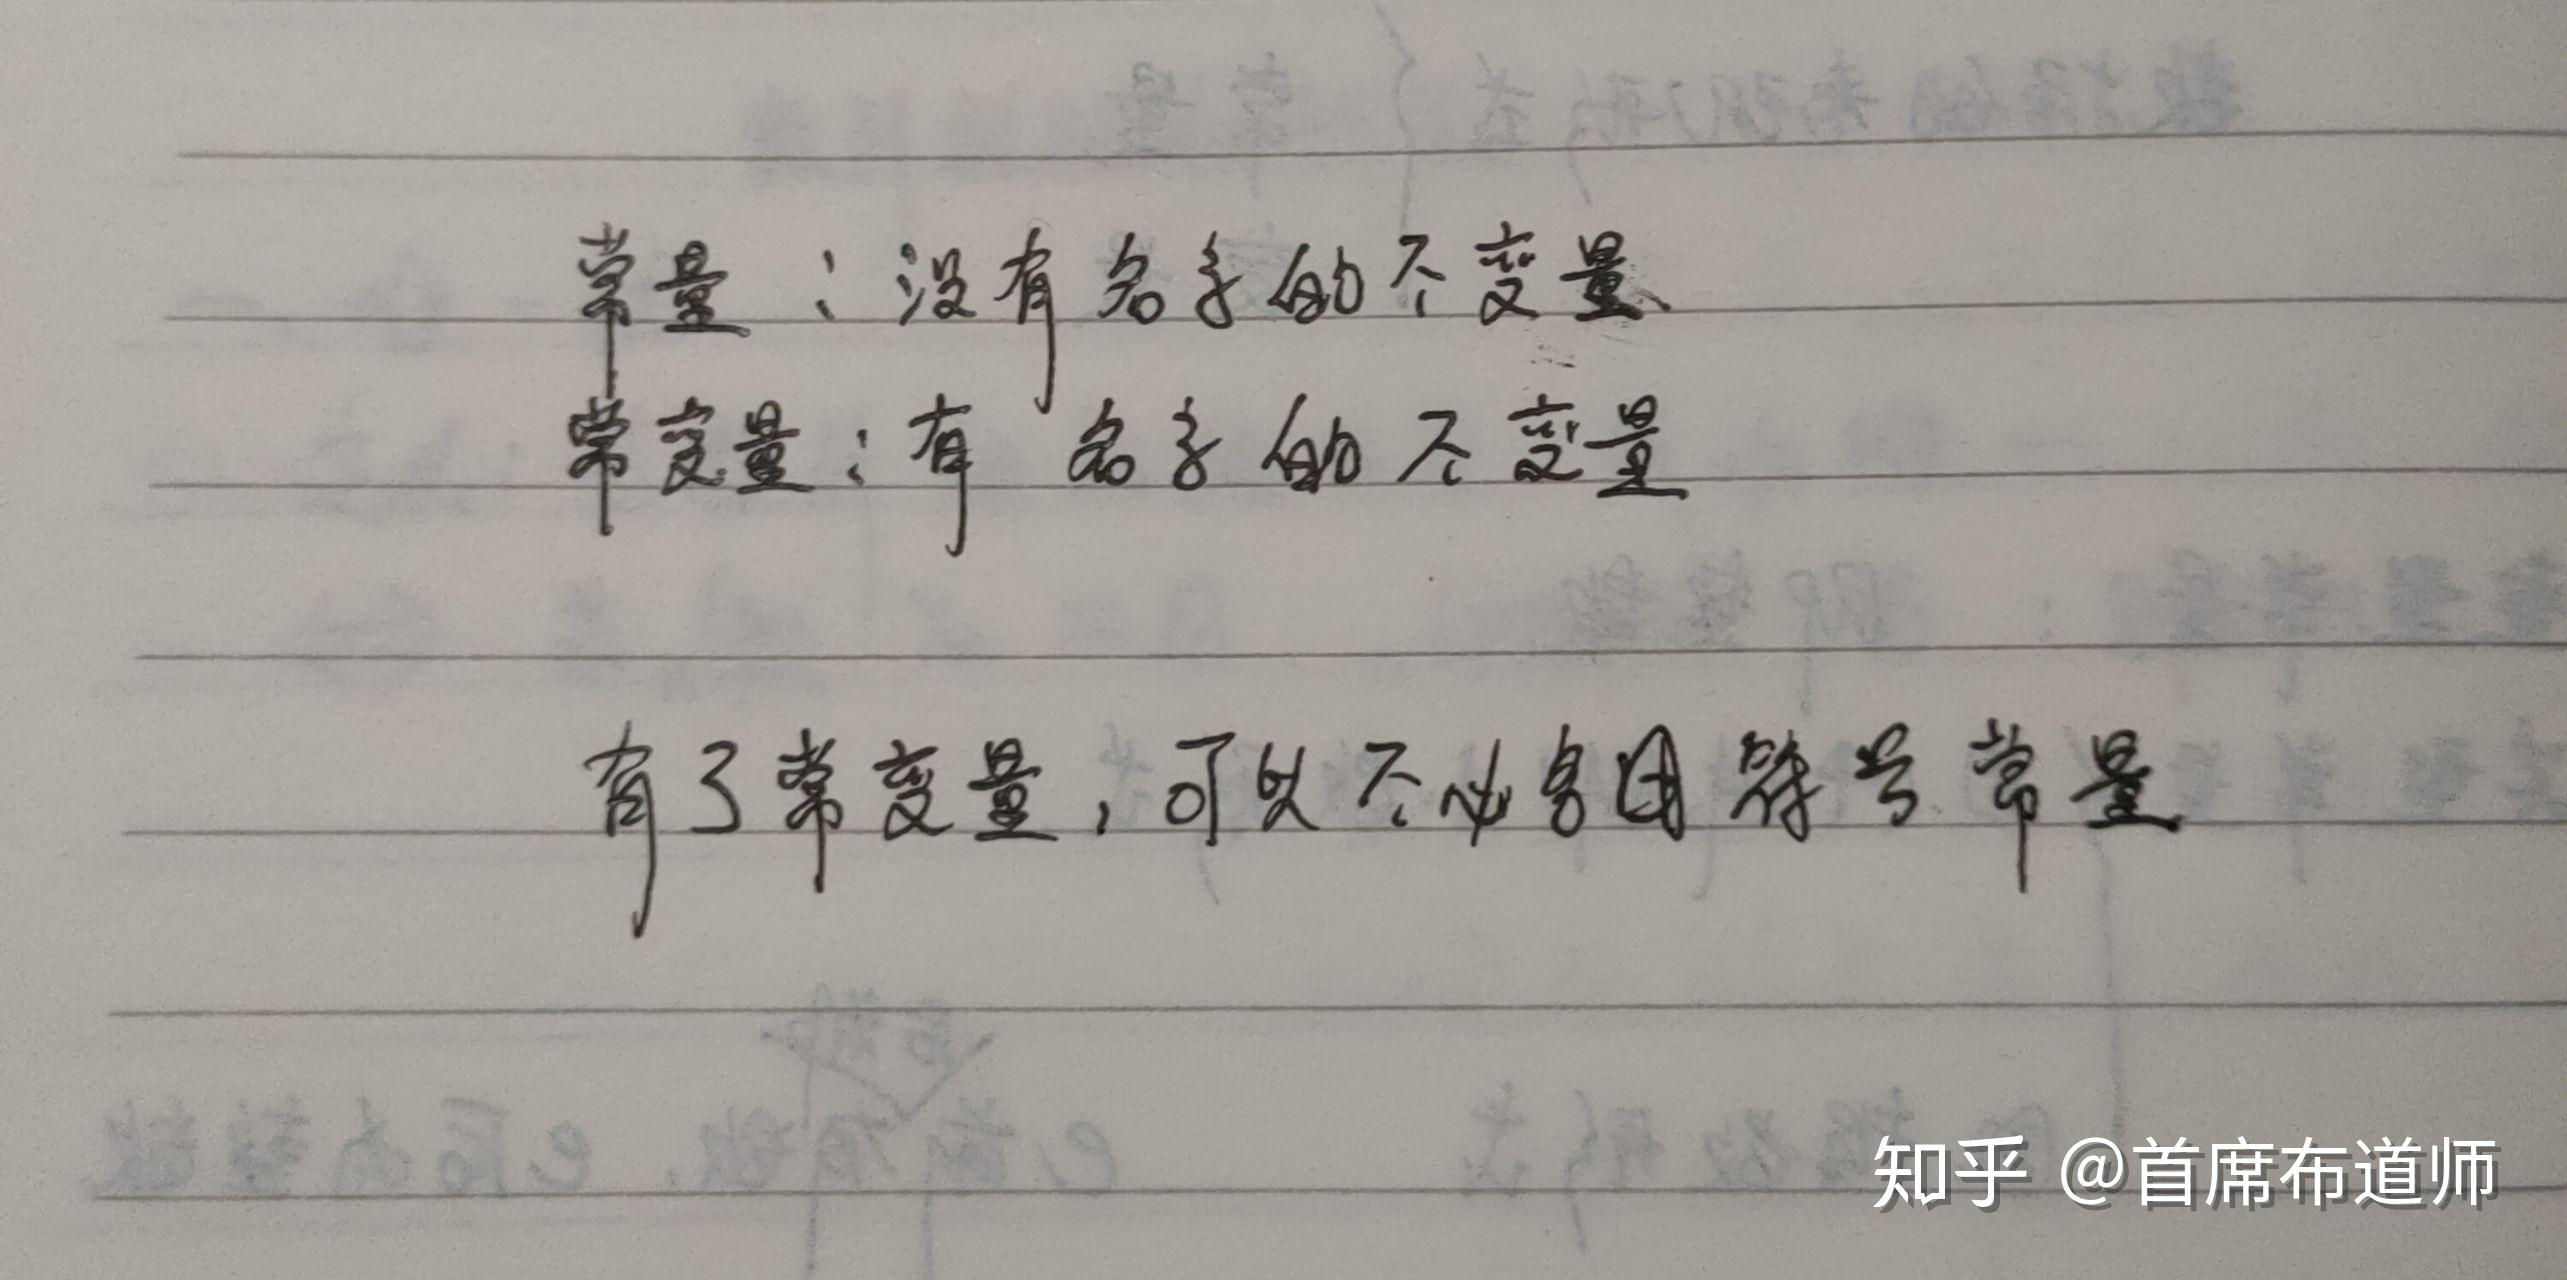 常量：没有名字的不变量
常变量：有名字的不变量
有了常变量，可以不必多用符号常量
知乎 @首席布道师